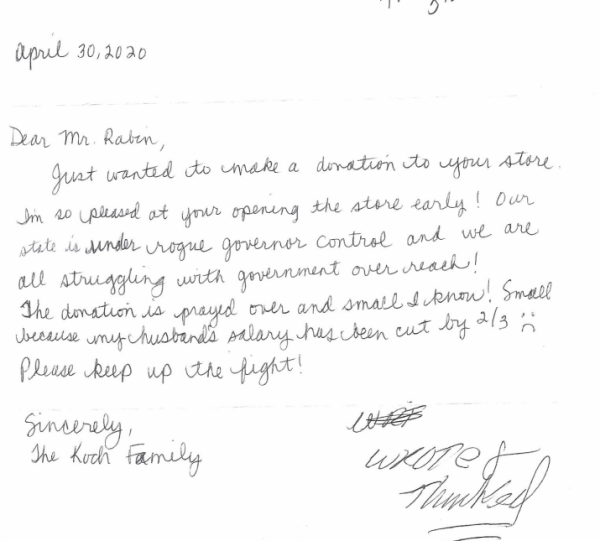 April 30, 2020
Dear Mr. Rabin,
Just wanted to make a donation to your store.
I'm so pleased at your opening the store early! Our
state is under rogue governor control and we are
all struggling with government over reach!
The donation is prayed over and small I know! Small
because my husband's salary has been cut by 2/3 :(
Please keep up the fight!
Sincerely,
The Koch Family
Wrote &
Thanked